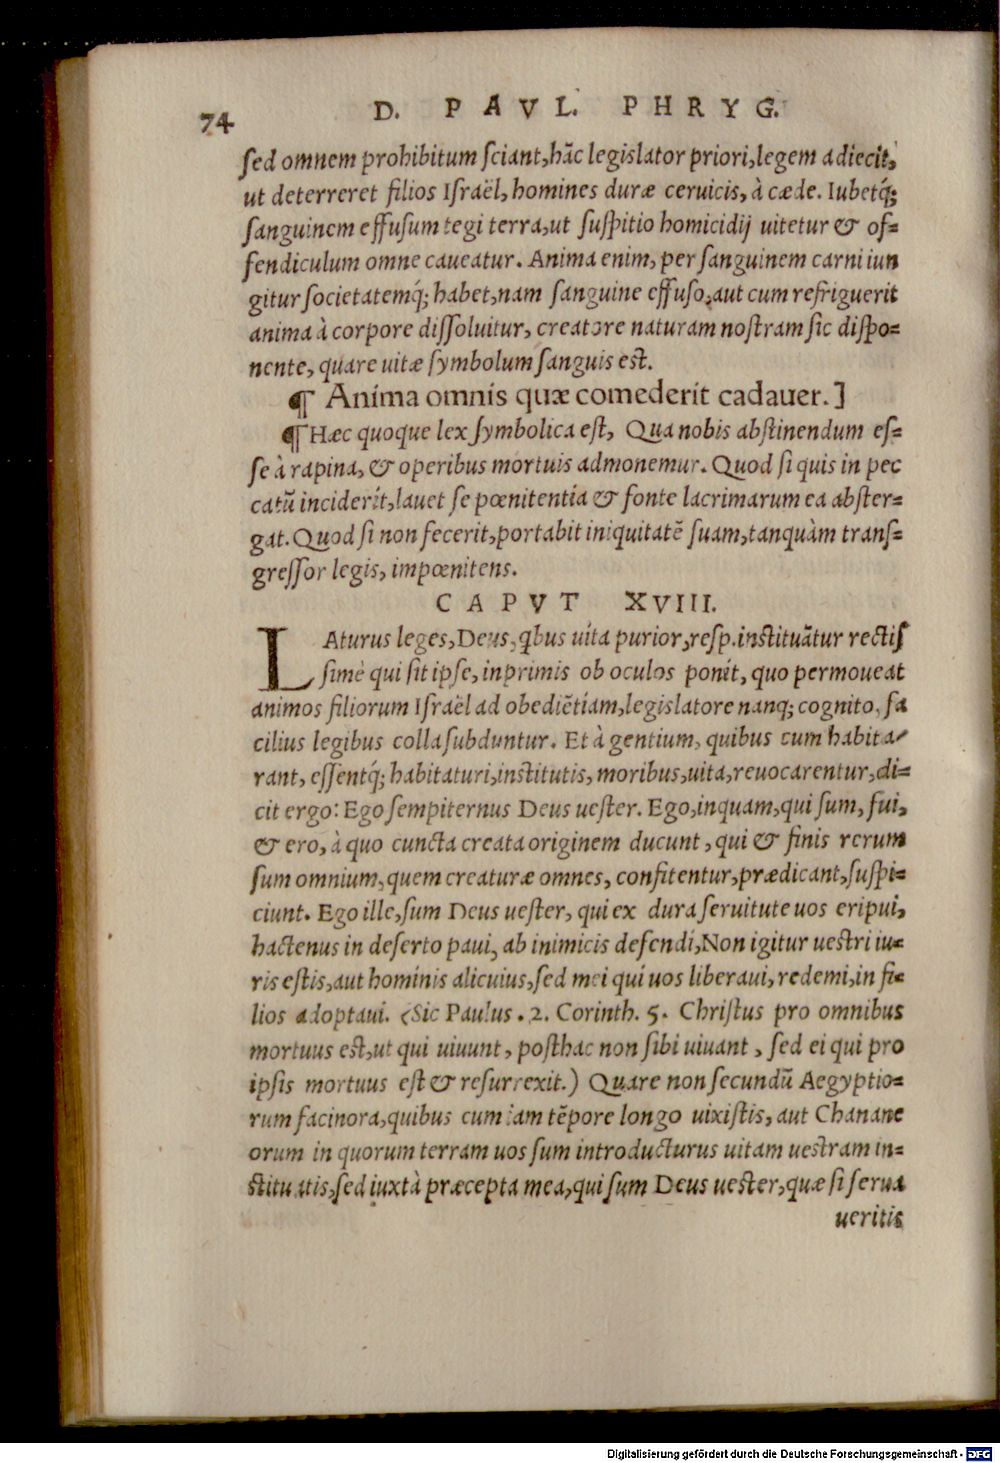 74
D. PAVL. PHRYG.
sed omnem prohibitum sciant, hãc legislator priori, legem adiecit,
ut deterreret filios Israël, homines duræ ceruicis, à cæde. Iubetq́;
sanguinem effusum tegi terra, ut suspitio homicidij uitetur & of=
fendiculum omne caueatur. Anima enim, per sanguinem carni iun
gitur societatemq́; habet, nam sanguine effuso, aut cum refriguerit
anima à corpore dissoluitur, creatore naturam nostram sic dispo=
nente, quare uitæ symbolum sanguis est.
¶ Anima omnis quæ comederit cadauer.]
¶ Hæc quoque lex symbolica est, Qua nobis abstinendum es=
se à rapina, & operibus mortuis admonemur. Quod si quis in pec
catũ inciderit, lauet se pœnitentia & fonte lacrimarum ea abster=
gat. Quod si non fecerit, portabit iniquitatẽ suam, tanquàm trans=
gressor legis, impœnitens.
CAPVT XVIII.
LAturus leges, Deus, qbus uita purior, resp. instituãtur rectis
simè qui sit ipse, inprimis ob oculos ponit, quo permoueat
animos filiorum Israël ad obediẽtiam, legislatore nanq; cognito, fa
cilius legibus colla subduntur. Et à gentium, quibus cum habita⸗
rant, essentq́; habitaturi, institutis, moribus, uita, reuocarentur, di=
cit ergo: Ego sempiternus Deus uester. Ego, inquam, qui sum, fui,
& ero, à quo cuncta creata originem ducunt, qui & finis rerum
sum omnium, quem creaturæ omnes, confitentur, prædicant, suspi=
ciunt. Ego ille, sum Deus uester, qui ex dura seruitute uos eripui,
hactenus in deserto paui, ab inimicis defendi, Non igitur uestri iu=
ris estis, aut hominis alicuius, sed mei qui uos liberaui, redemi, in fi=
lios adoptaui. (Sic Paulus. 2. Corinth. 5. Christus pro omnibus
mortuus est, ut qui uiuunt, posthac non sibi uiuant, sed ei qui pro
ipsis mortuus est & resurrexit.) Quare non secundũ Aegyptio=
rum facinora, quibus cum iam tẽpore longo uixistis, aut Chanane
orum in quorum terram uos sum introducturus uitam uestram in=
stituatis, sed iuxtà præcepta mea, qui sum Deus uester, quæ si serua
ueritis
Digitalisierung gefördert durch die Deutsche Forschungsgemeinschaft - DFG